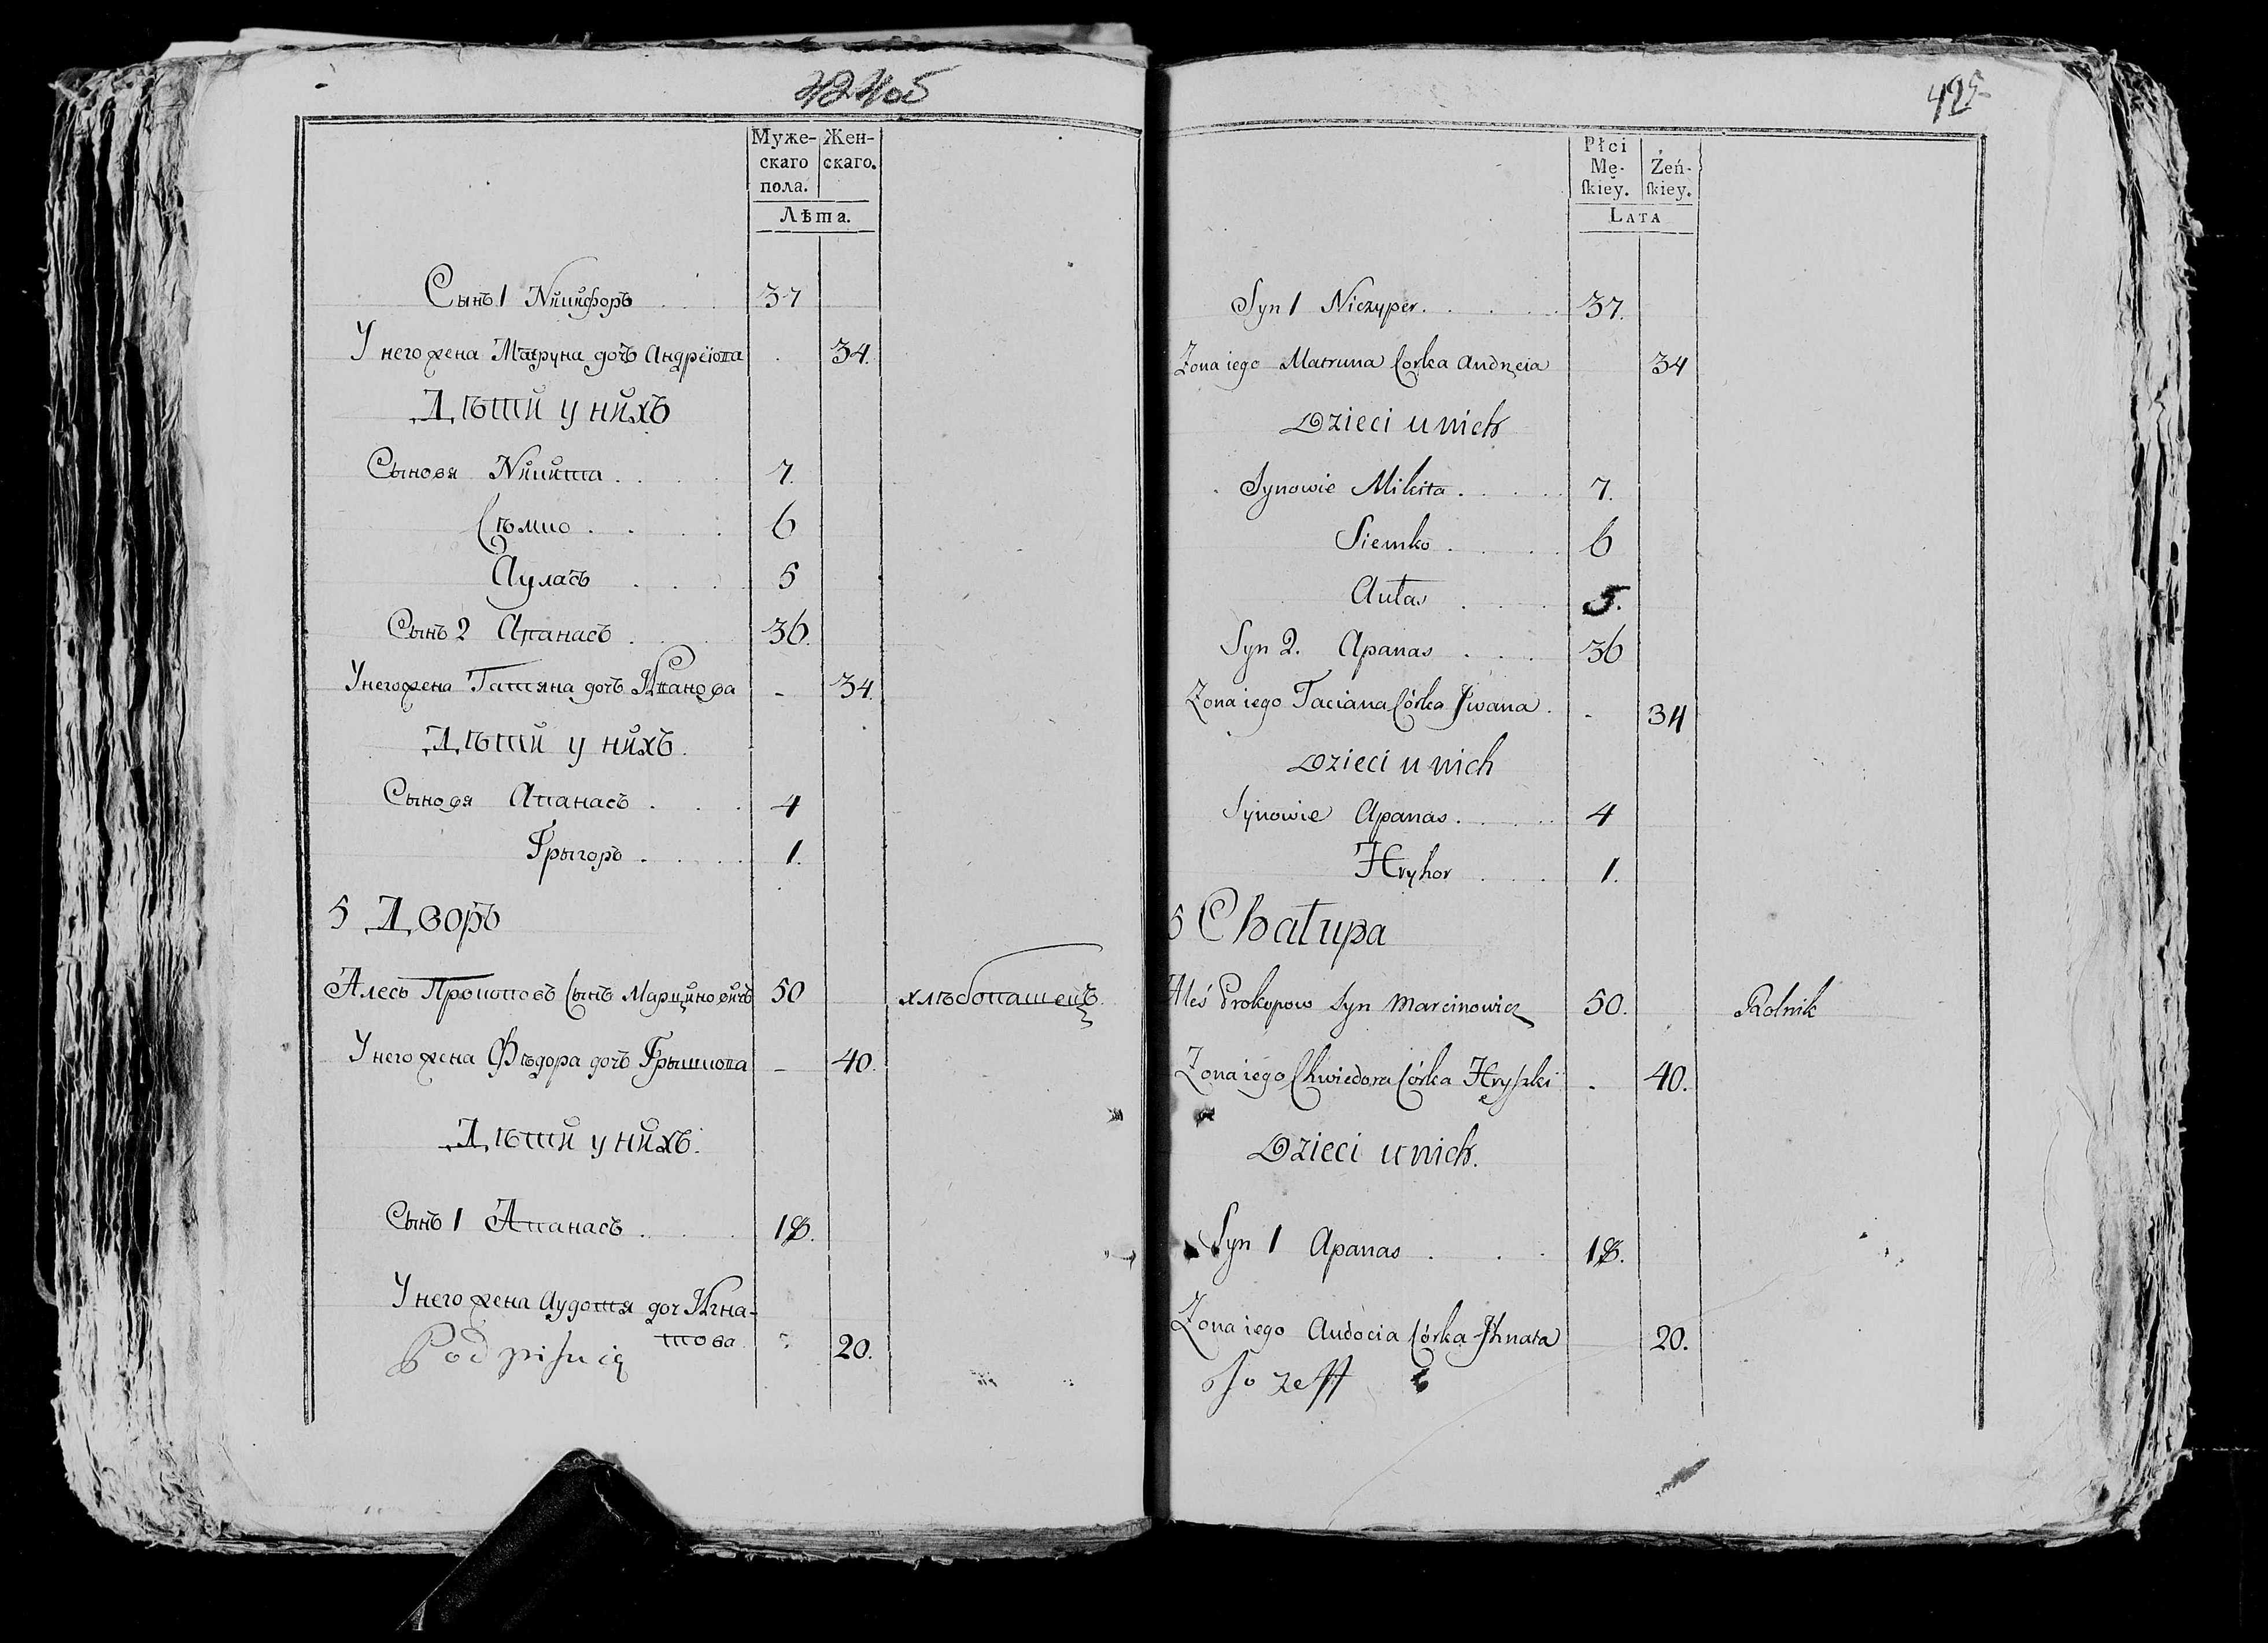 Муже-
скаго
пола.
Жен-
скаго.
Лѣта.
Сынъ 1 Никифоръ 37
У него жена Матруна дочъ Андреiова 34.
Дѣти у нихъ
Сыновя Никита 7.
Сѣмко 6
Ауласъ 5
Сынъ 2 Апанасъ 36.
У него жена Татяна дочъ Иванова - 34.
Дѣти у нихъ.
Сыновя Апанасъ 4
Грыгоръ 1.
5 Дворъ
Алесь Прокоповъ Сынъ Марциновичъ 50 хлѣбопашецъ.
У него жена Фѣдора дочъ Грышкова - 40.
Дѣти у нихъ.
Сынъ 1 Апанасъ 18.
У него жена Аудотя доч Игна-
това 20.
Podpisuię
425
Płci
Mę-
skiey.
Żeń-
skiey.
LATA
Syn 1 Niczyper 37.
Zona iego Matruna Corka Andreia 34
Dzieci u nich
Synowie Mikita 7.
Siemko 6
Aułas 5.
Syn 2. Apanas 36
Zona iego Taciana Córka Jwana - 34
Dzieci u nich
Synowie Apanas 4
Hryhor 1.
5 Chałupa
Aleś Prokopow Syn Marcinowicz 50. Rolnik
Zona iego Chwiedora Córka Hryszki - 40.
Dzieci u nich.
Syn 1 Apanas 18.
Zona iego Audocia Córka Jhnata 20.
Jozeff